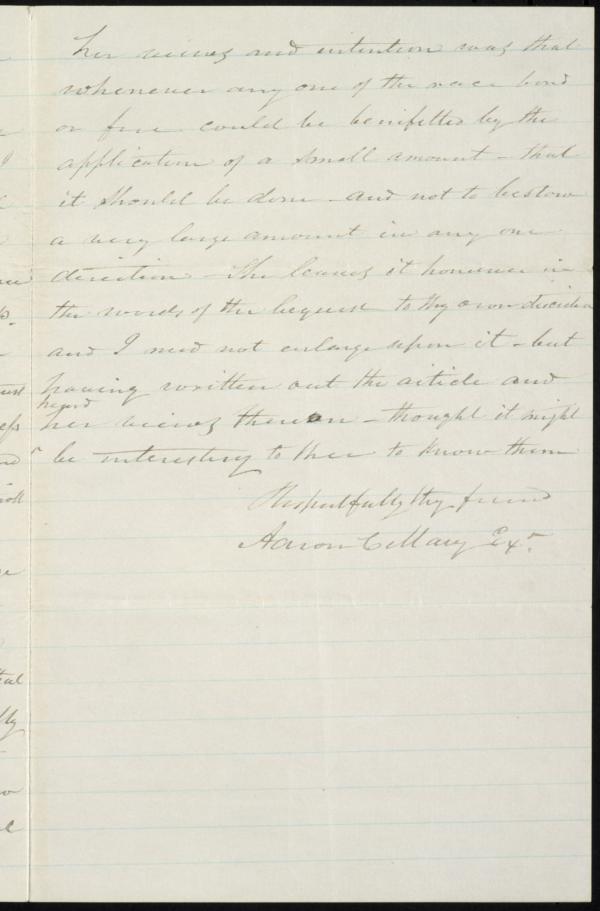 her views and intention was that
whenever any one of the race bond
or free could be benifitted by the
application of a small amount - that
it should be done - and not to bestow
a very large amount in any one
direction - She leaves it however in
the words of the bequest to thy own decision
and I need not enlarge upon it - but
having written out the article and
heard
her views thereon - thought it might
be interesting to thee to know them
Respectfully thy friend
Aaron C Macy Exr.